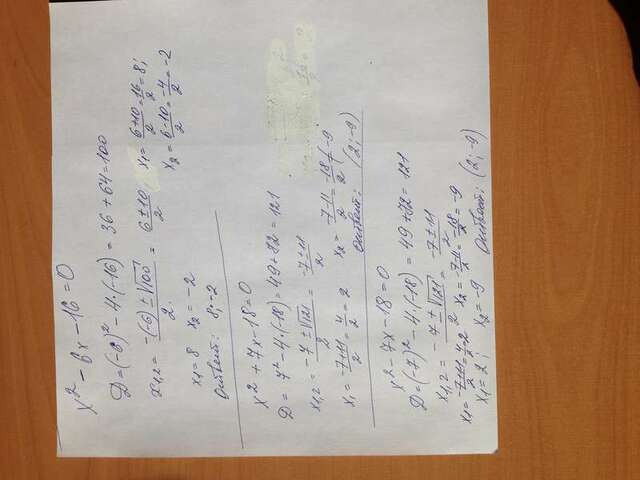 x² - 6x - 16 = 0
D = (-6)² - 4·(-16) = 36 + 64 = 100
x₁,₂ = -(-6) ± √100 / 2 = 6 ± 10 / 2; x₁ = 6+10/2 = 16/2 = 8;
x₂ = 6-10/2 = -4/2 = -2
x₁ = 8 x₂ = -2
Ответ: 8; -2
x² + 7x - 18 = 0
D = 7² - 4·(-18) = 49 + 82 = 121
x₁,₂ = -7 ± √121 / 2 = -7 ± 11 / 2
x₁ = -7+11/2 = 4/2 = 2 x₂ = -7-11/2 = -18/2 = -9
Ответ: (2; -9)
x² + 7x - 18 = 0
D = (-7)² - 4·(-18) = 49 + 82 = 121
x₁,₂ = -7 ± √121 / 2 = -7 ± 11 / 2
x₁ = -7+11/2 = 4/2 = 2 x₂ = -7-11/2 = -18/2 = -9
x₁ = 2; x₂ = -9 Ответ: (2; -9)